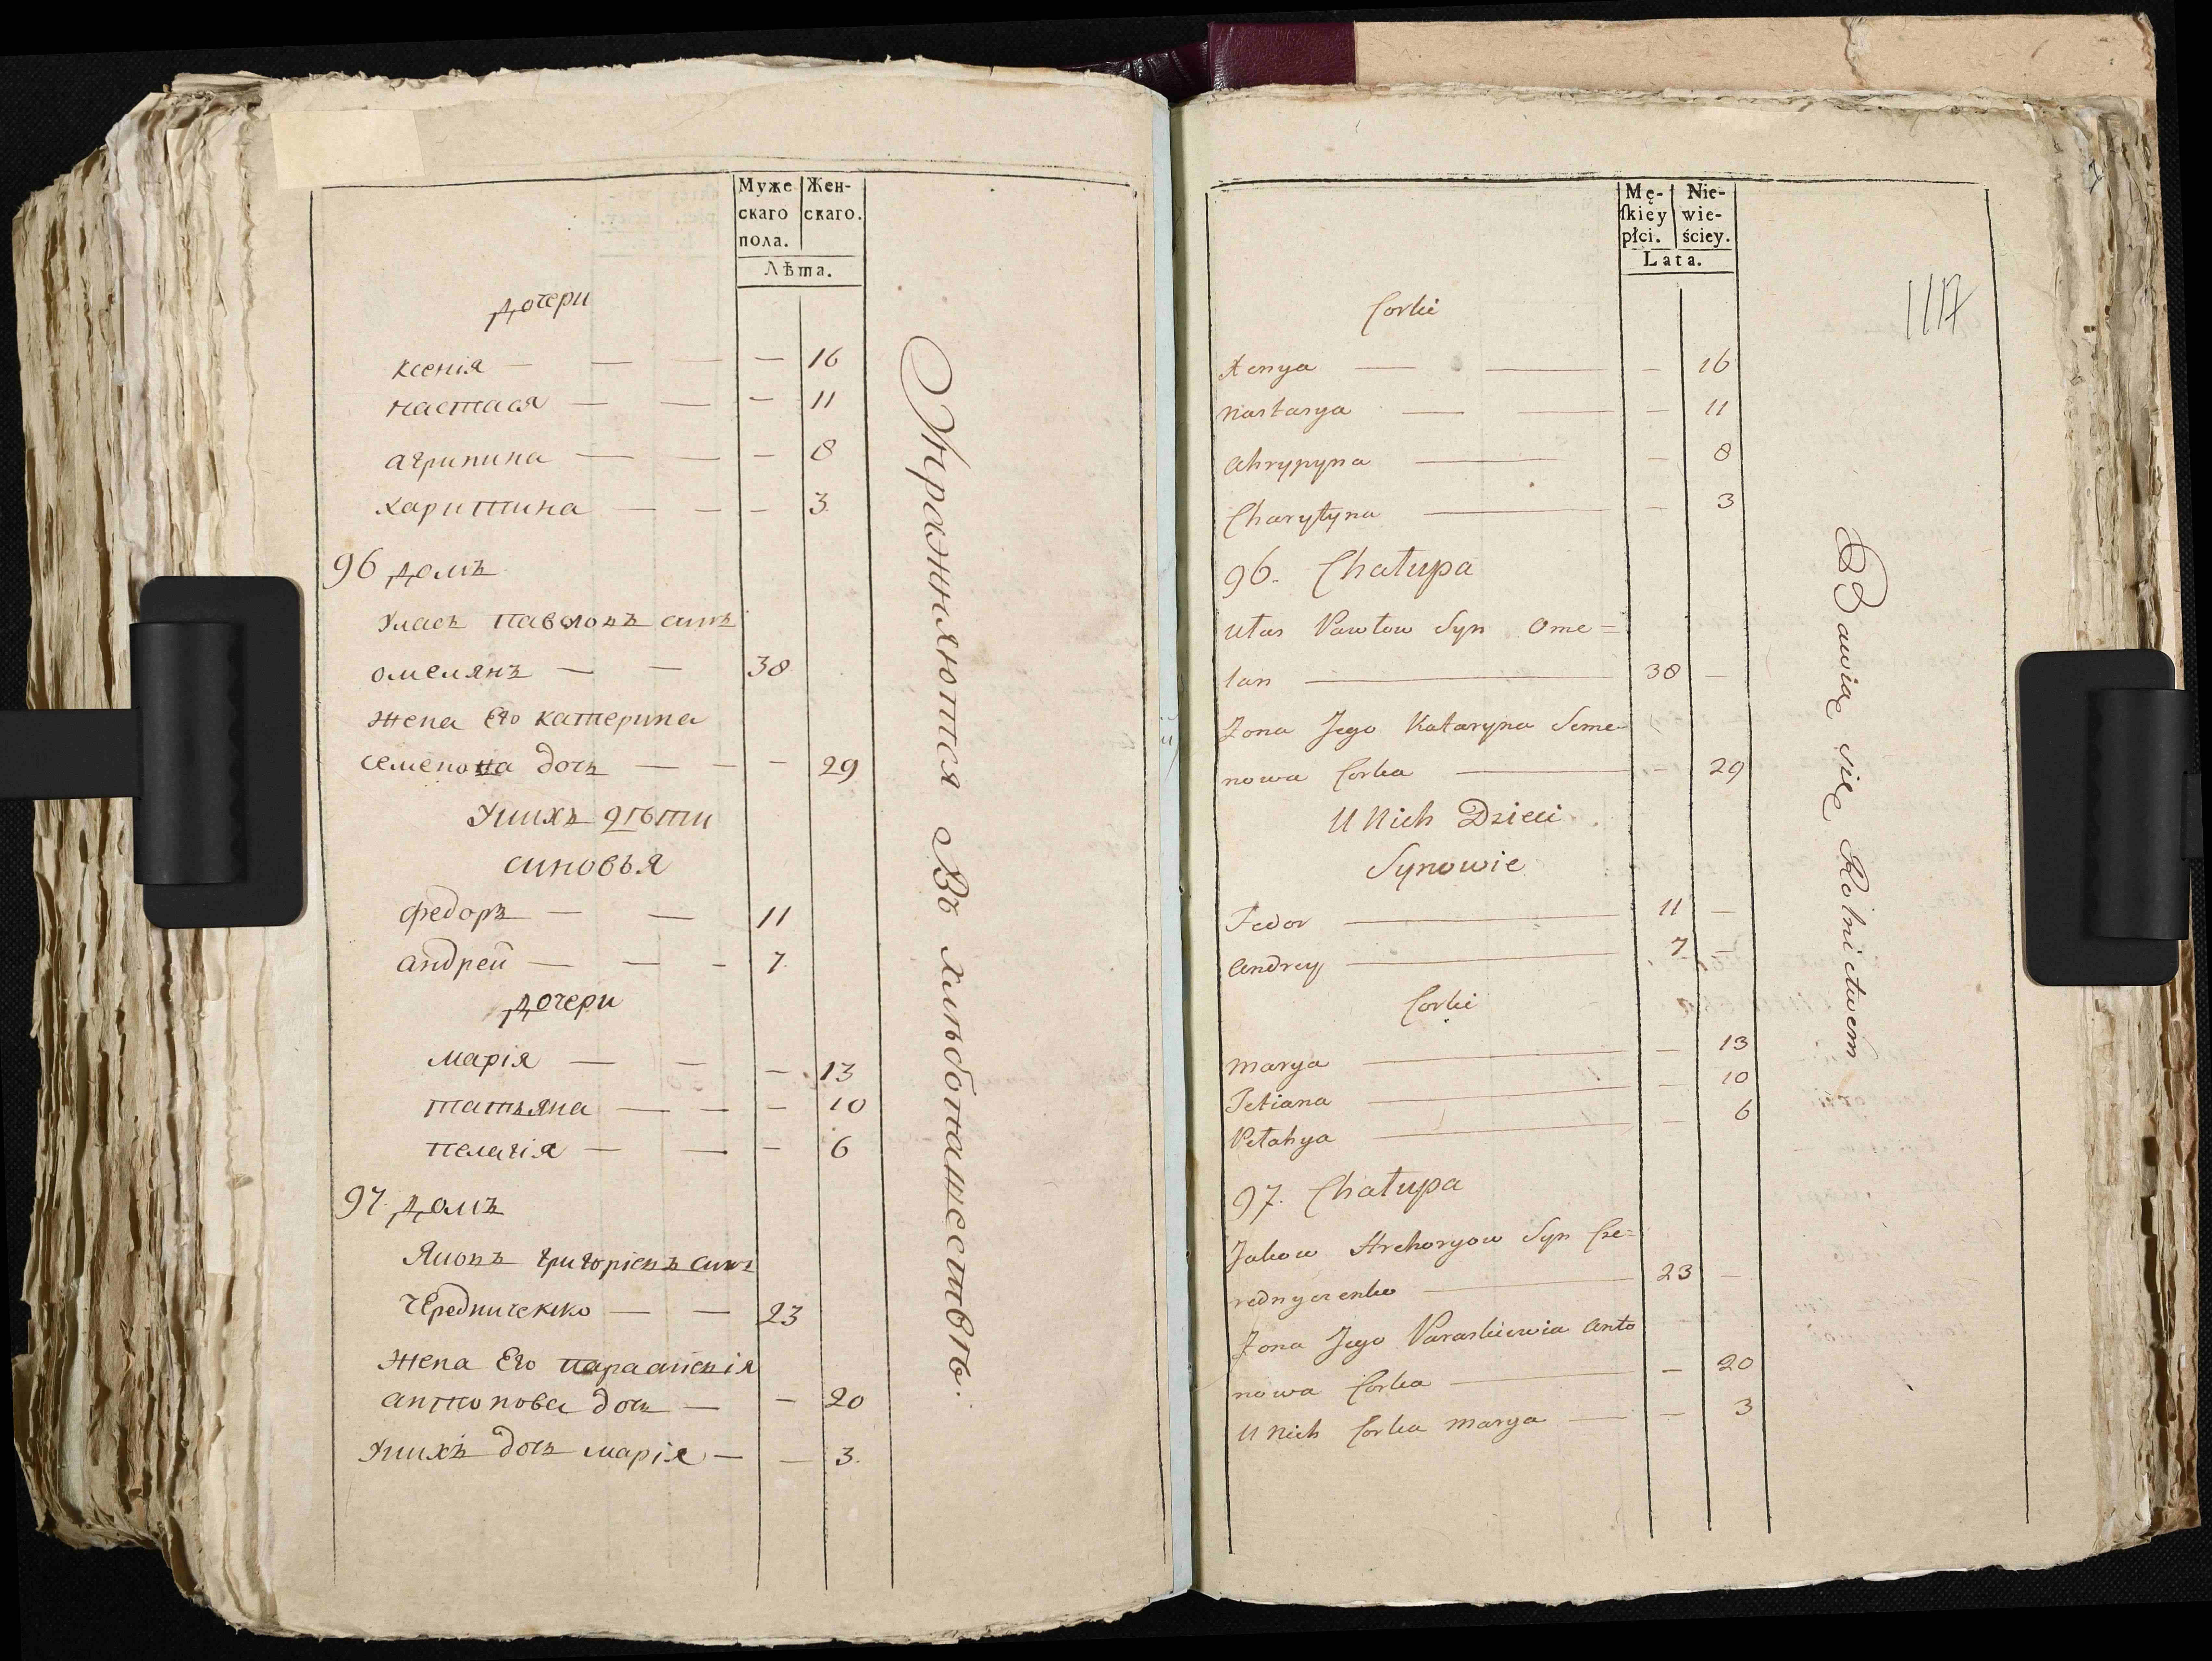 Муже
скаго
пола.
Жен-
скаго.
Лѣта.
дочери
ксенія — — — — 16
настася — — — 11
агрипина — — — 8
харитина — — — 3
96 домъ
Уласъ павловъ синъ
омелянъ — — 38
жена Его катерина
семенова дочъ — — — 29
Унихъ дѣти
синовья
федоръ — — 11
андрей — — — 7.
дочери
марія — — — 13
татьяна — — — 10
пелагія — — — 6
97. домъ
Яковъ григоріевъ синъ
чередниченко — — 23
жена Его параскевія
антонова дочъ — — 20
Унихъ дочъ марія — — 3.
Упражняются Въ хлѣбопашествѣ.
Mę-
ſkiey
płci.
Nie-
wie-
ściey.
Lata.
1117
Corki
Xenya — — — 16
Nastasya — — — 11
Ahrypyna — — 8
Charytyna — — 3
96. Chałupa
Ułas Pawłow Syn Ome=
lan — 38 —
Zona Jego Kataryna Seme-
nowa Corka — — 29
U Nich Dzieci
Synowie
Fedor — 11 —
Andrey — 7 —
Corki
Marya — — 13
Tetiana — — 10
Pełahya — — 6
97. Chałupa
Jakow Hrehoryow Syn Cze=
rednyczenko — 23 —
Zona Jego Paraskiewia Anto
nowa Corka — — 20
U Nich Corka Marya — — 3
Bawią się Rolnictwem